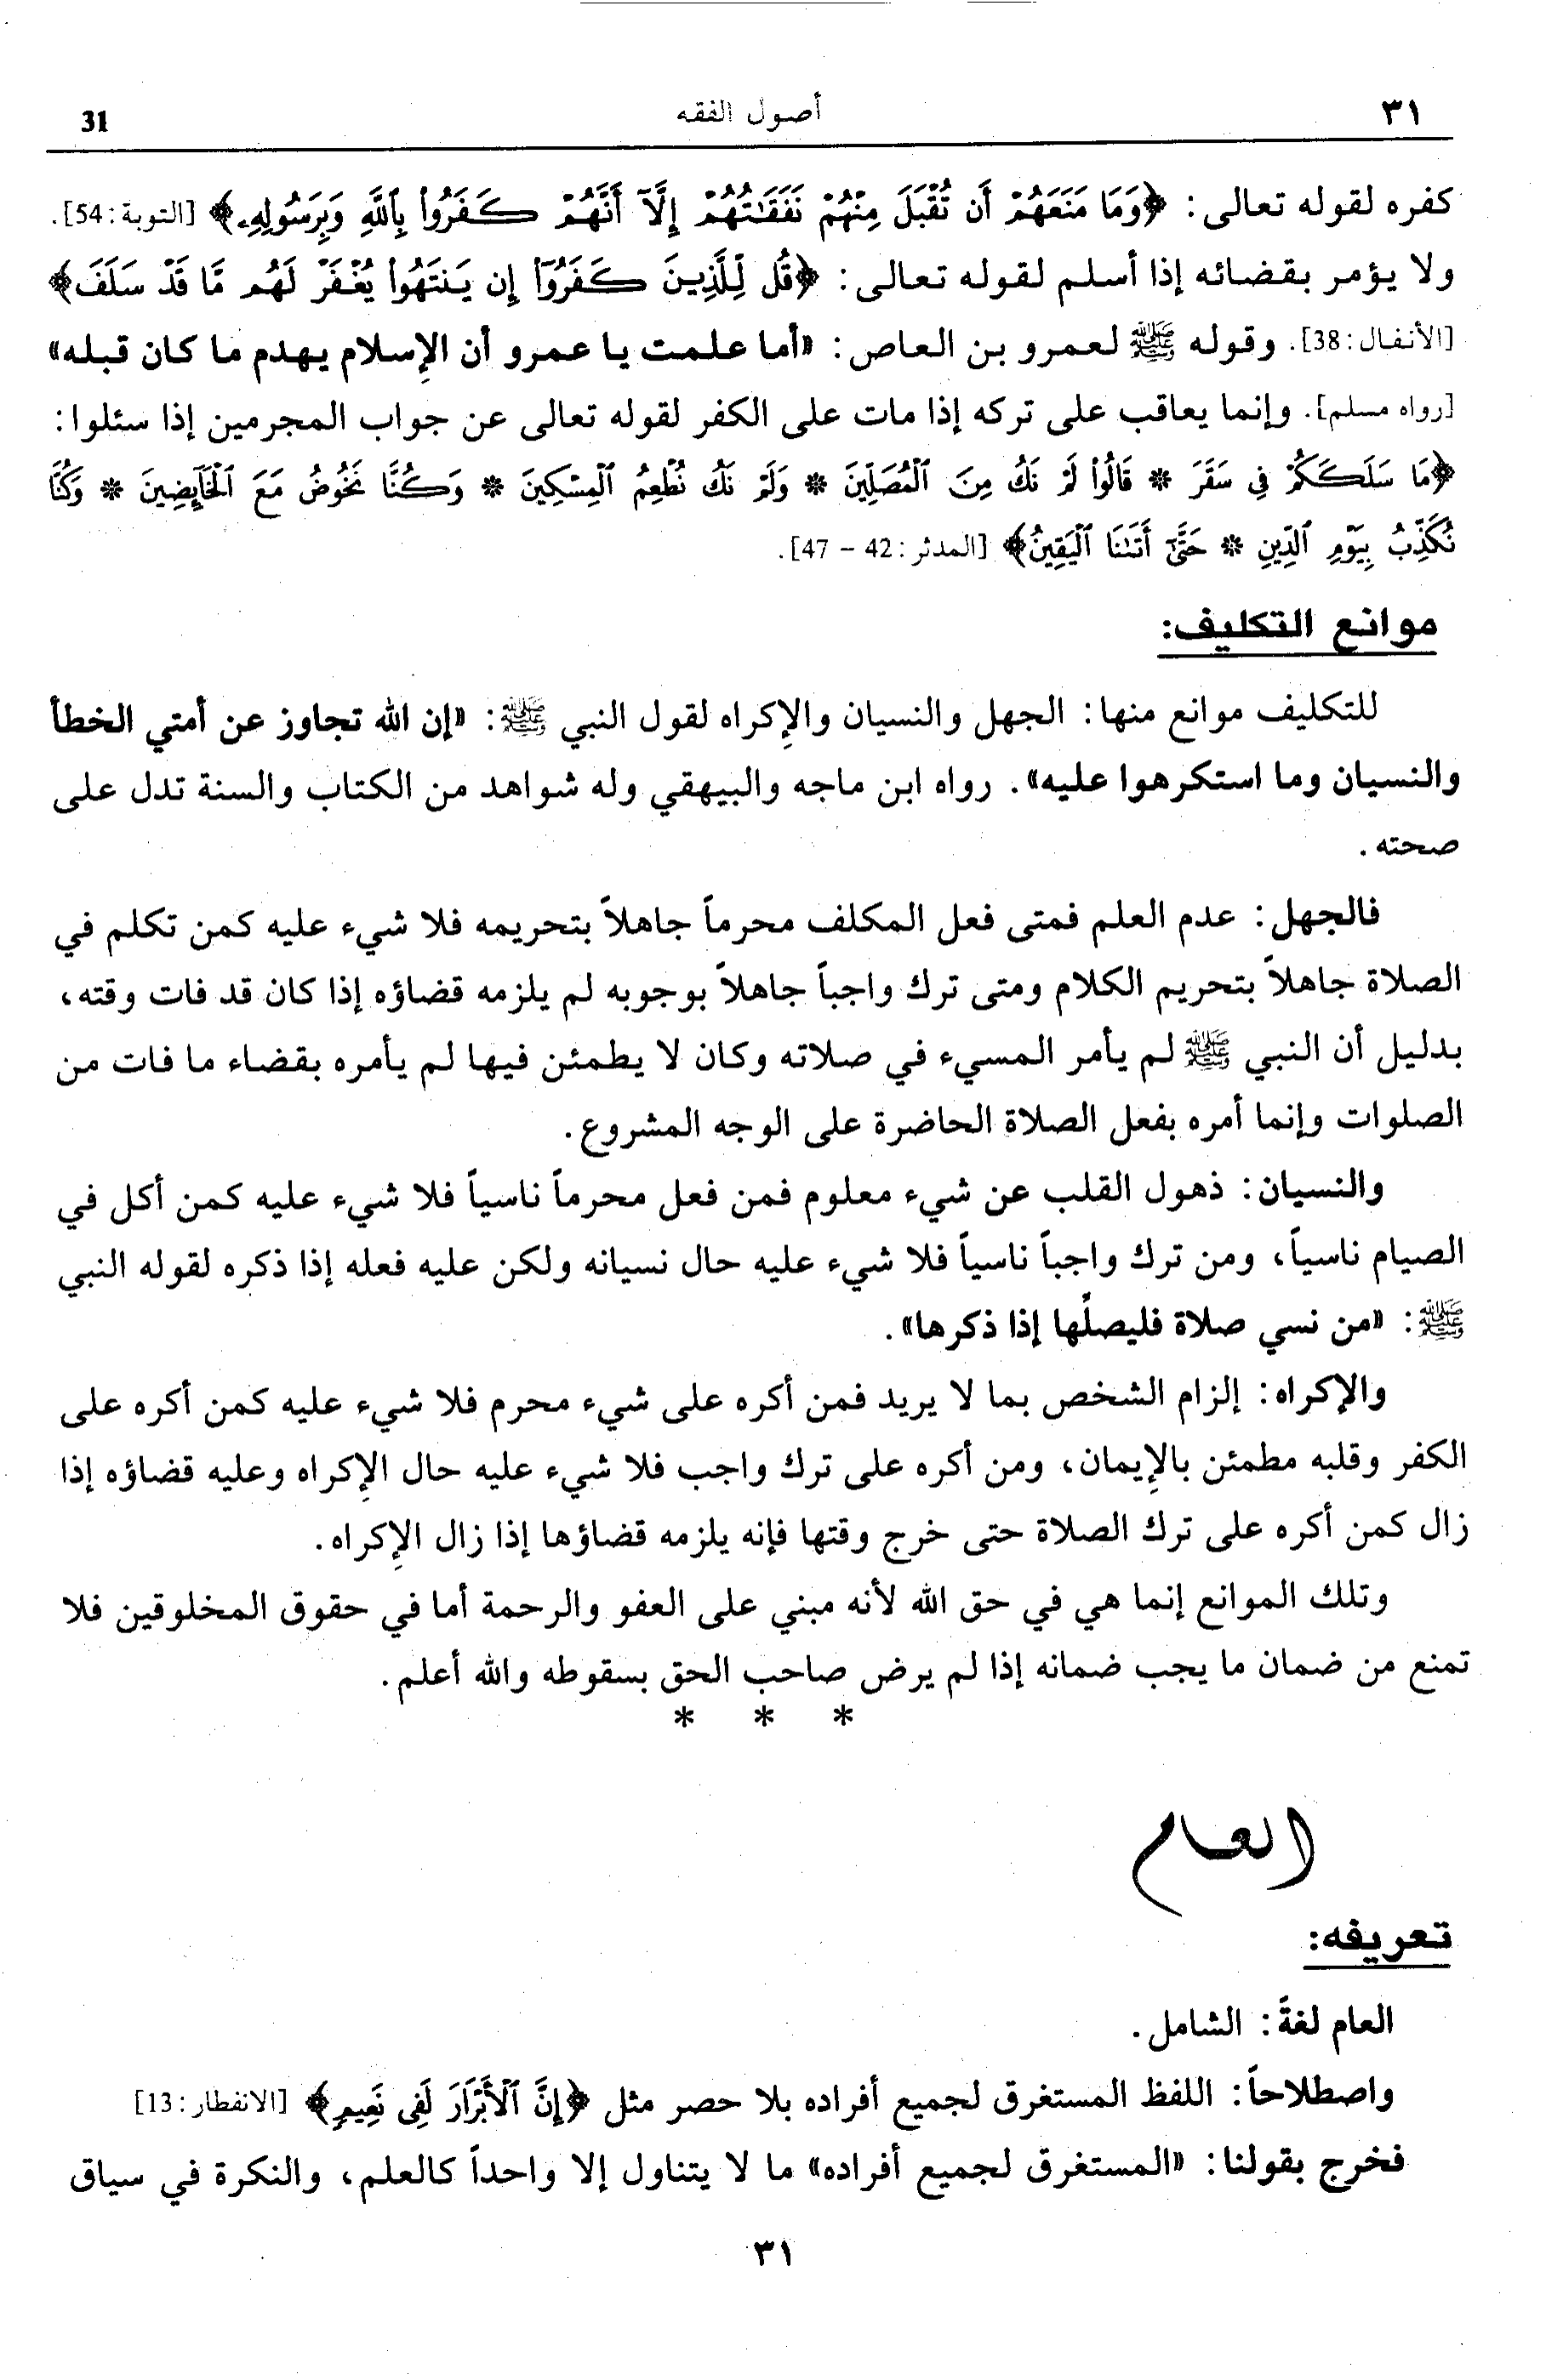 ٣١ أصول الفقه 31
كفره لقوله تعالى: ﴿وَمَا مَنَعَهُمْ أَن تُقْبَلَ مِنْهُمْ نَفَقَٰتُهُمْ إِلَّآ أَنَّهُمْ كَفَرُوا۟ بِٱللَّهِ وَبِرَسُولِهِۦ﴾ [التوبة: 54].
ولا يؤمر بقضائه إذا أسلم لقوله تعالى: ﴿قُل لِّلَّذِينَ كَفَرُوٓا۟ إِن يَنتَهُوا۟ يُغْفَرْ لَهُم مَّا قَدْ سَلَفَ﴾
[الأنفال: 38]. وقوله ﷺ لعمرو بن العاص: «أما علمت يا عمرو أن الإِسلام يهدم ما كان قبله»
[رواه مسلم]. وإنما يعاقب على تركه إذا مات على الكفر لقوله تعالى عن جواب المجرمين إذا سئلوا:
﴿مَا سَلَكَكُمْ فِى سَقَرَ * قَالُوا۟ لَمْ نَكُ مِنَ ٱلْمُصَلِّينَ * وَلَمْ نَكُ نُطْعِمُ ٱلْمِسْكِينَ * وَكُنَّا نَخُوضُ مَعَ ٱلْخَآئِضِينَ * وَكُنَّا
نُكَذِّبُ بِيَوْمِ ٱلدِّينِ * حَتَّىٰٓ أَتَىٰنَا ٱلْيَقِينُ﴾ [المدثر: 42 - 47].
موانع التكليف:
للتكليف موانع منها: الجهل والنسيان والإِكراه لقول النبي ﷺ: «إن الله تجاوز عن أمتي الخطأ
والنسيان وما استكرهوا عليه». رواه ابن ماجه والبيهقي وله شواهد من الكتاب والسنة تدل على
صحته.
فالجهل: عدم العلم فمتى فعل المكلف محرماً جاهلاً بتحريمه فلا شيء عليه كمن تكلم في
الصلاة جاهلاً بتحريم الكلام ومتى ترك واجباً جاهلاً بوجوبه لم يلزمه قضاؤه إذا كان قد فات وقته،
بدليل أن النبي ﷺ لم يأمر المسيء في صلاته وكان لا يطمئن فيها لم يأمره بقضاء ما فات من
الصلوات وإنما أمره بفعل الصلاة الحاضرة على الوجه المشروع.
والنسيان: ذهول القلب عن شيء معلوم فمن فعل محرماً ناسياً فلا شيء عليه كمن أكل في
الصيام ناسياً، ومن ترك واجباً ناسياً فلا شيء عليه حال نسيانه ولكن عليه فعله إذا ذكره لقوله النبي
ﷺ: «من نسي صلاة فليصلِّها إذا ذكرها».
والإكراه: إلزام الشخص بما لا يريد فمن أكره على شيء محرم فلا شيء عليه كمن أكره على
الكفر وقلبه مطمئن بالإِيمان، ومن أكره على ترك واجب فلا شيء عليه حال الإِكراه وعليه قضاؤه إذا
زال كمن أكره على ترك الصلاة حتى خرج وقتها فإنه يلزمه قضاؤها إذا زال الإِكراه.
وتلك الموانع إنما هي في حق الله لأنه مبني على العفو والرحمة أما في حقوق المخلوقين فلا
تمنع من ضمان ما يجب ضمانه إذا لم يرض صاحب الحق بسقوطه والله أعلم.
* * *
العام
تعريفه:
العام لغةً: الشامل.
واصطلاحاً: اللفظ المستغرق لجميع أفراده بلا حصر مثل ﴿إِنَّ ٱلْأَبْرَارَ لَفِى نَعِيمٍ﴾ [الانفطار: 13]
فخرج بقولنا: «المستغرق لجميع أفراده» ما لا يتناول إلا واحداً كالعلم، والنكرة في سياق
٣١